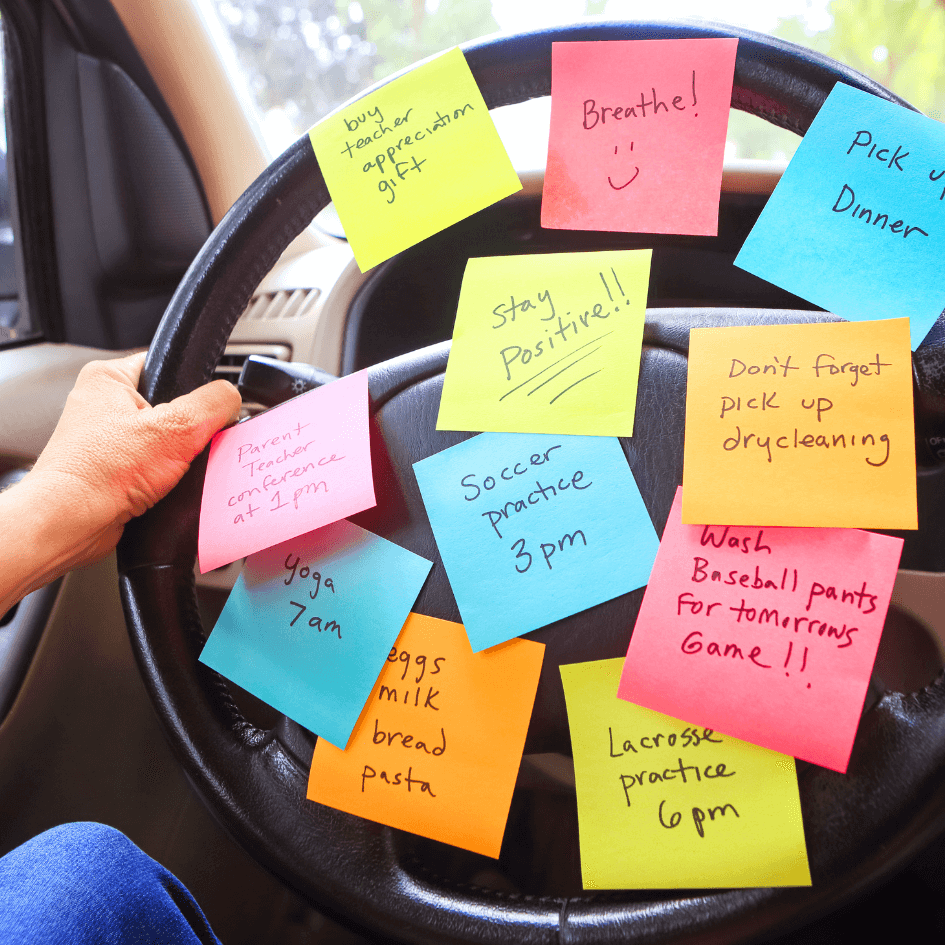 buy
teacher
appreciation
gift
Breathe!
Pick
Dinner
Stay
Positive!!
Don't forget
pick up
drycleaning
Parent
Teacher
conference
at 1pm
Soccer
practice
3pm
Wash
Baseball pants
For tomorrows
Game!!
yoga
7am
eggs
milk
bread
pasta
Lacrosse
practice
6pm